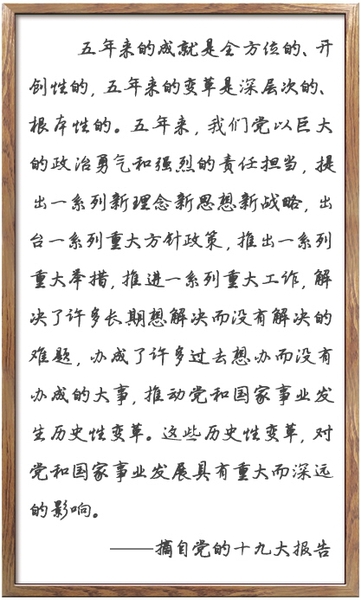 五年来的成就是全方位的、开
创性的，五年来的变革是深层次的、
根本性的。五年来，我们党以巨大
的政治勇气和强烈的责任担当，提
出一系列新理念新思想新战略，出
台一系列重大方针政策，推出一系列
重大举措，推进一系列重大工作，解
决了许多长期想解决而没有解决的
难题，办成了许多过去想办而没有
办成的大事，推动党和国家事业发
生历史性变革。这些历史性变革，对
党和国家事业发展具有重大而深远
的影响。
——摘自党的十九大报告